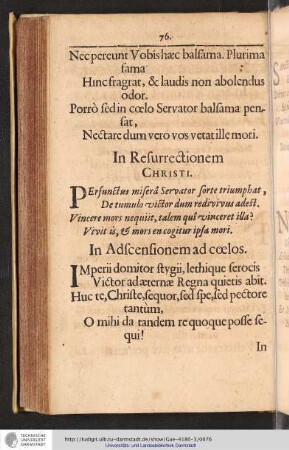 76.
Nec pereunt Vobis hæc balsama. Plurima
fama
Hinc fragrat, & laudis non abolendus
odor.
Porrò sed in cœlo Servator balsama pen-
sat,
Nectare dum vero vos vetat ille mori.
In Resurrectionem
CHRISTI.
PErfunctus miserâ Servator sorte triumphat,
De tumulo victor dum redivivus adest.
Vincere mors nequiit, talem quî vinceret illa?
Vivit is, & mors en cogitur ipsa mori.
In Adscensionem ad cœlos.
IMperii domitor stygii, lethique ferocis
Victor ad æternæ Regna quietis abit.
Huc te, Christe, sequor, sed spe, sed pectore
tantùm,
O mihi da tandem re quoque posse se-
qui!
In
TECHNISCHE
UNIVERSITÄT
DARMSTADT
http://tudigit.ulb.tu-darmstadt.de/show/Gue-4180-1/0076
Universitäts- und Landesbibliothek Darmstadt